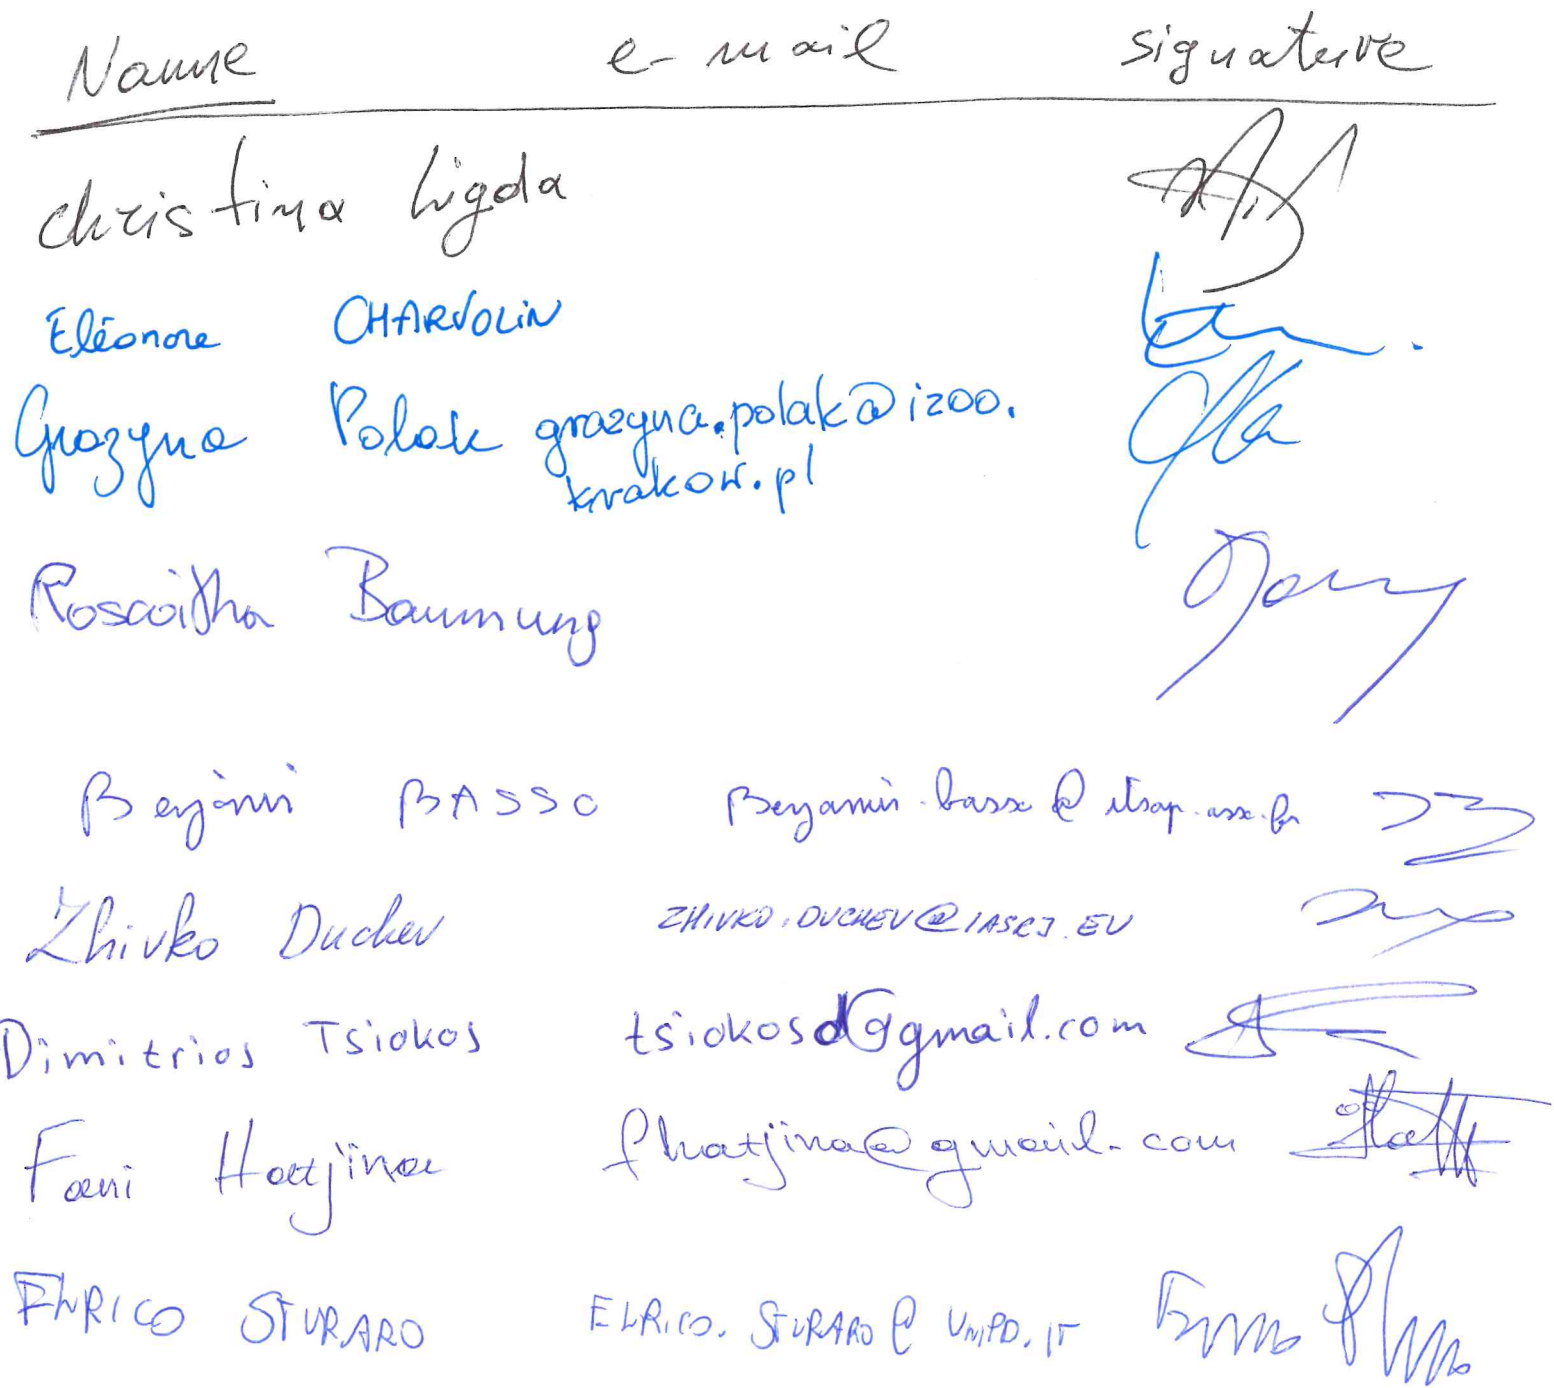 Name e-mail signature
Christina Ligda
Eléonore CHARVOLIN
Grazyna Polak grazyna.polak@izoo.
krakow.pl
Roswitha Baumung
Benjamin BASSO Benjamin.basso@itsap.asso.fr
Zhivko Duchev ZHIVKO.DUCHEV@IASRJ.EU
Dimitrios Tsiokos tsiokosd@gmail.com
Fani Hatjina fhatjina@gmail.com
ENRICO STURARO ENRICO.STURARO@UNIPD.IT